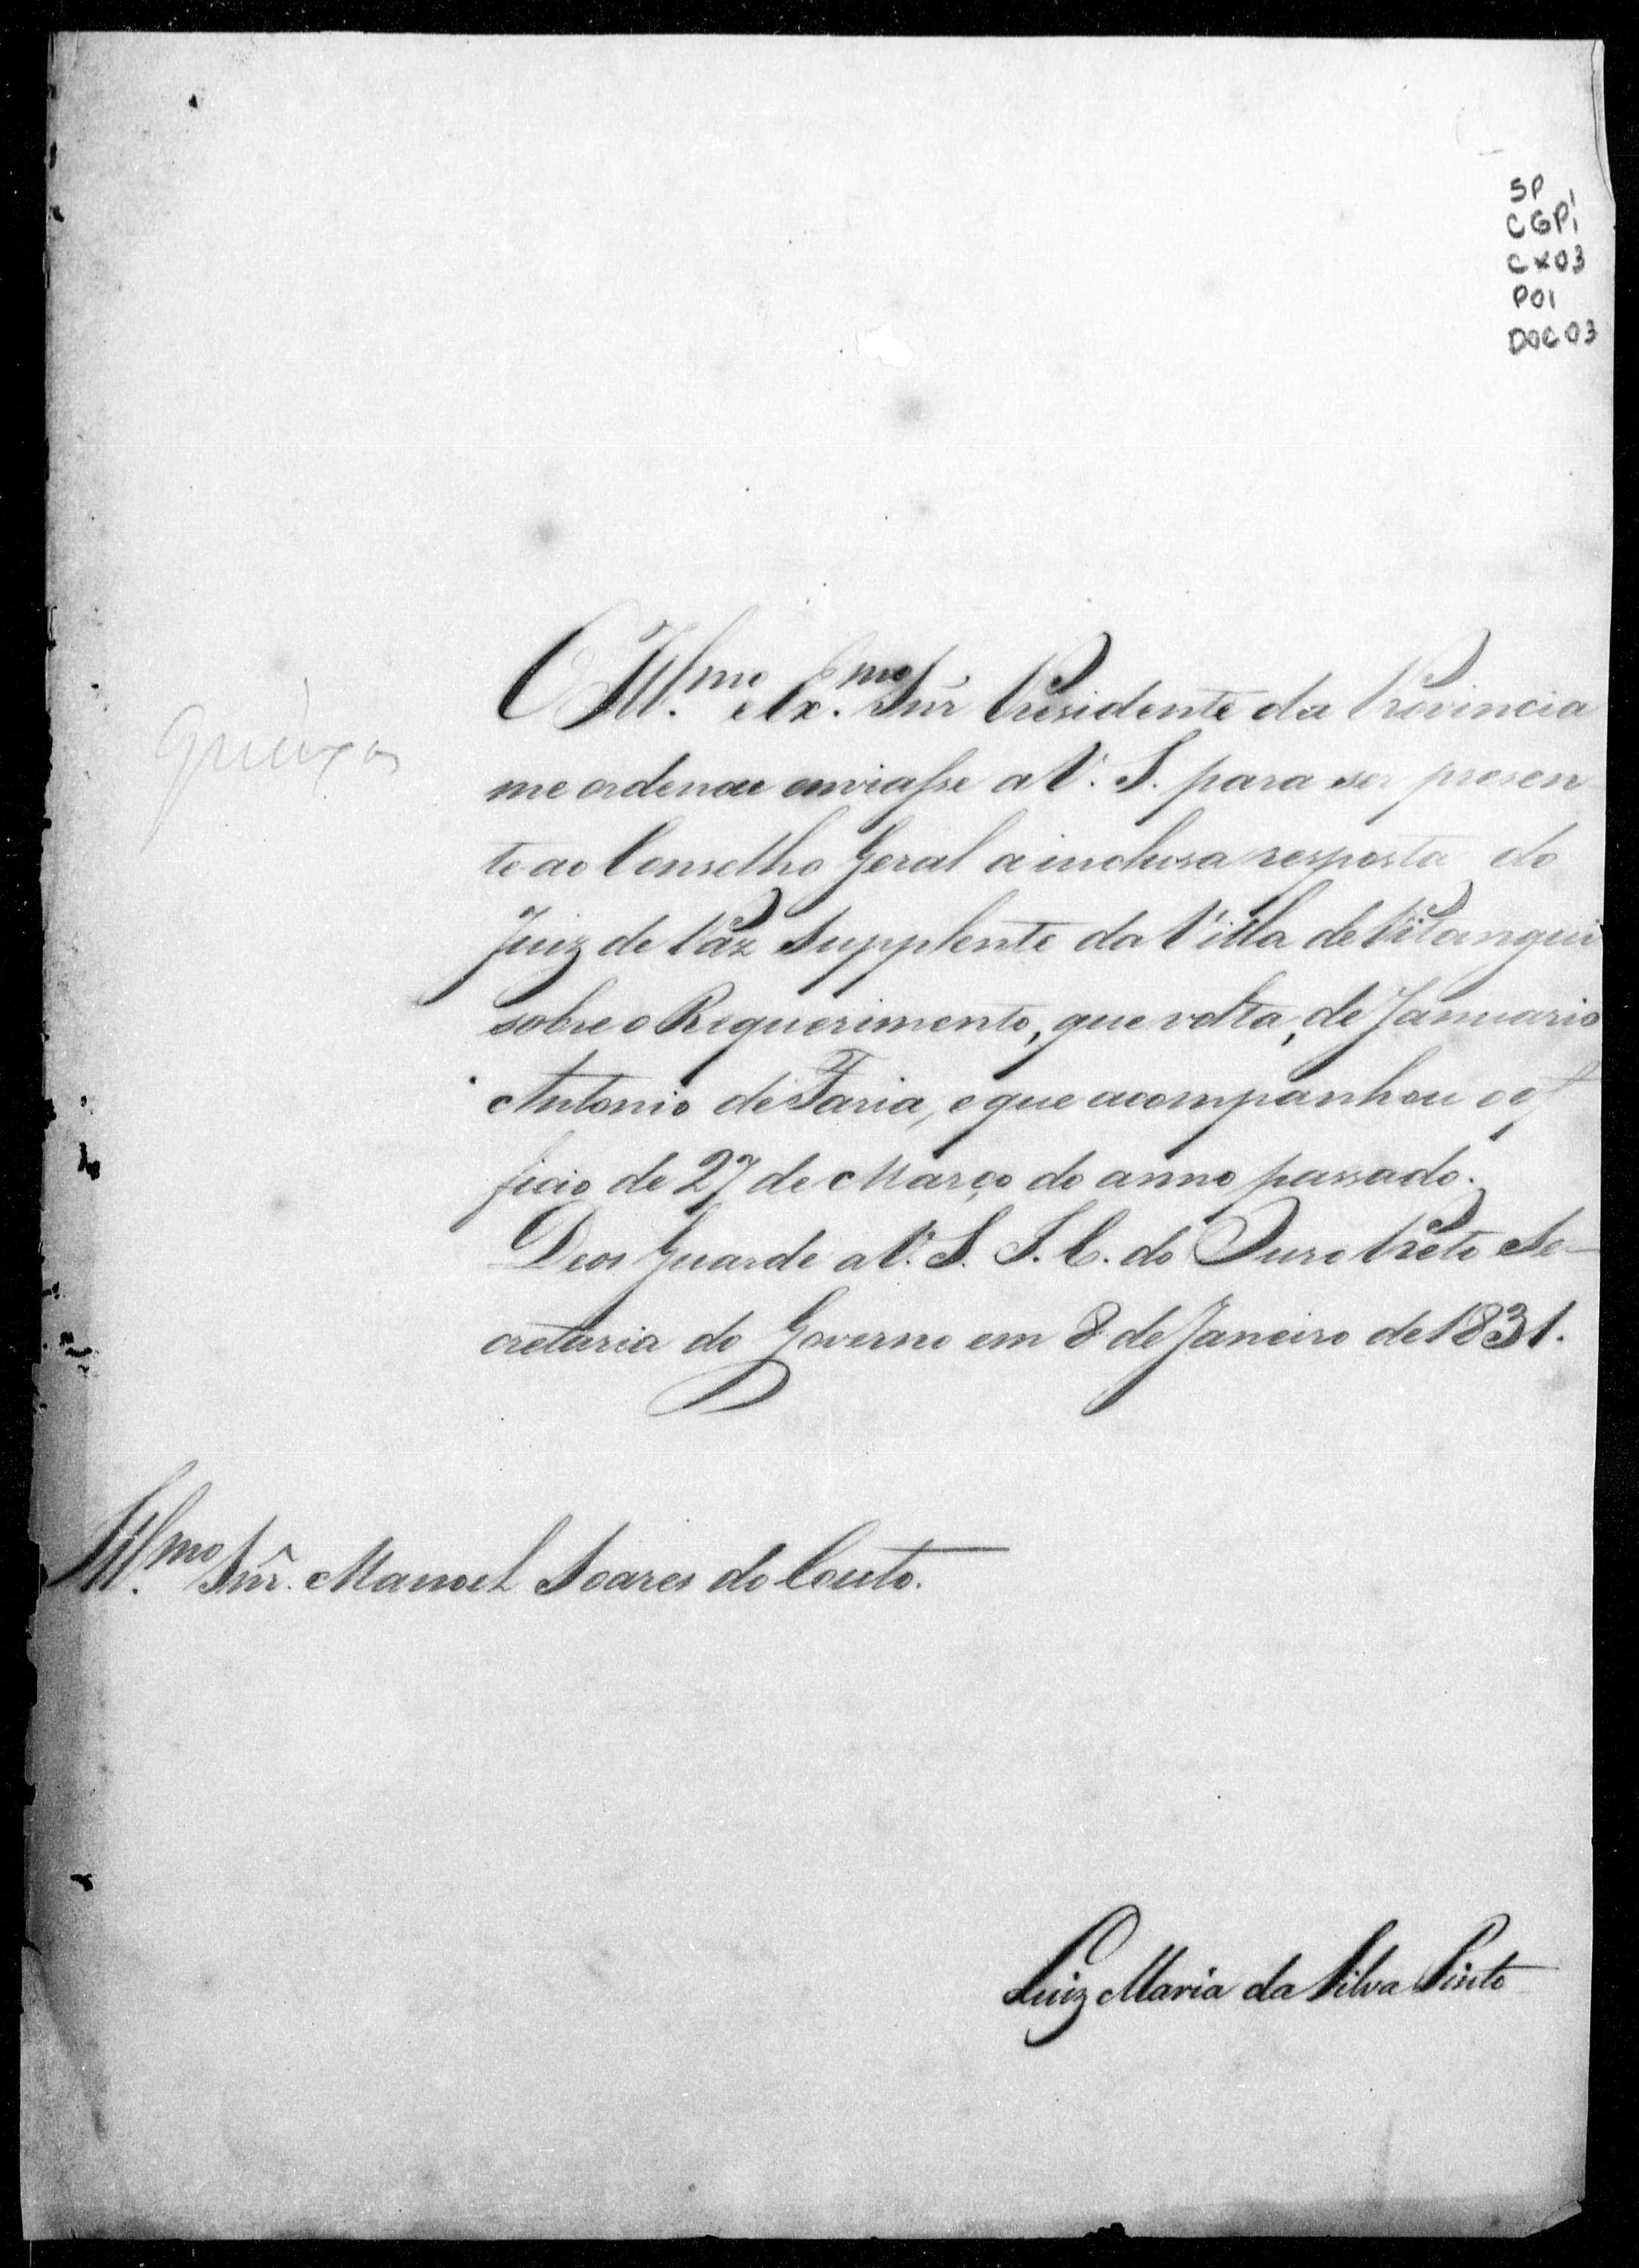 SP
CGP1
CX03
P01
DOC03
O Ill.mo e Ex.mo Snr Prezidente da Provincia
queixas
me ordenou enviasse a V. S. para ser presen
te ao Conselho Geral a inclusa resposta do
Juiz de Paz Supplente da Villa de Pitangui
sobre o Requerimento, que volta, de Januario
Antonio de Faria, e que acompanhou o of
ficio de 27 de Março do anno passado.
Deos Guarde a V. S. I. C. do Ouro Preto Se-
cretaria do Governo em 8 de Janeiro de 1831.
Ill.mo Snr. Manoel Soares do Couto.
Luiz Maria da Silva Pinto